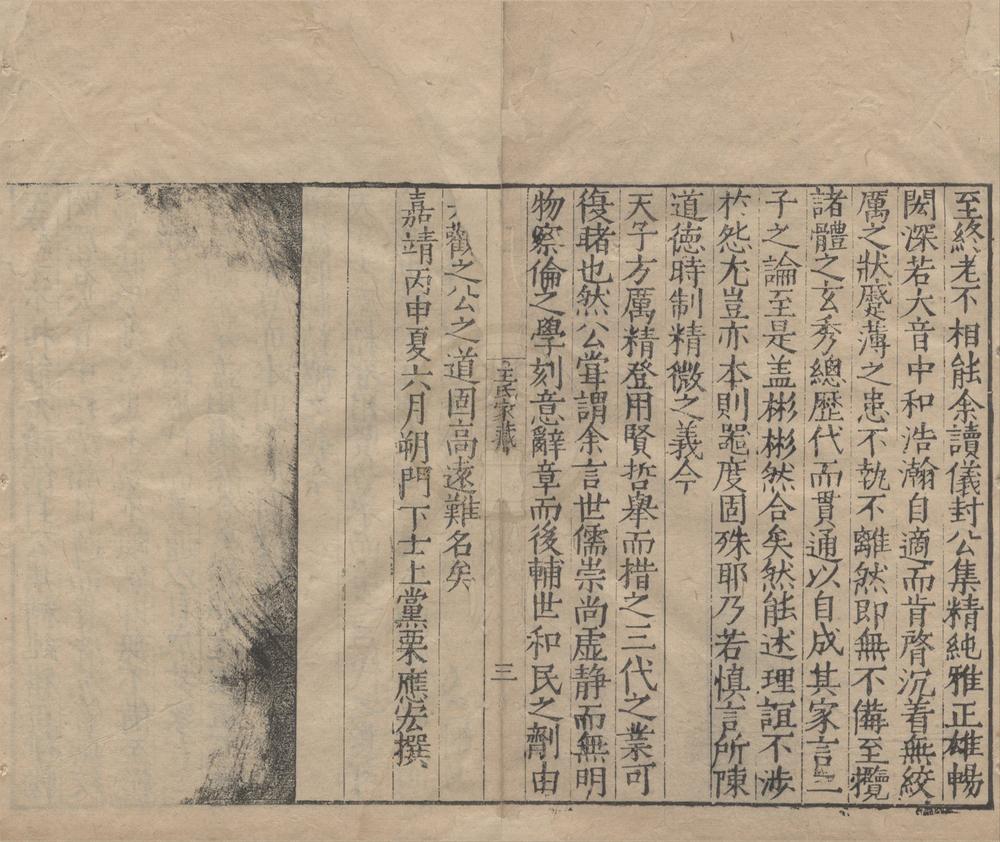 至終老不相能余讀儀封公集精純雅正雄暢
閎深若大音中和浩瀚自適而肯綮沉着無絞
厲之狀蹙薄之患不執不離然即無不備至攬
諸體之玄秀總歷代而貫通以自成其家言二
子之論至是盖彬彬然合矣然能述理誼不涉
於怨尤豈亦本則噐度固殊耶乃若慎言所陳
道德時制精微之義今
天子方厲精登用賢哲舉而措之三代之業可
復睹也然公甞謂余言世儒崇尚虚静而無明
物察倫之學刻意辭章而後輔世和民之劑由
觀之公之道固高遠難名矣
嘉靖丙申夏六月朔門下士上黨栗應宏撰
王氏家藏
三